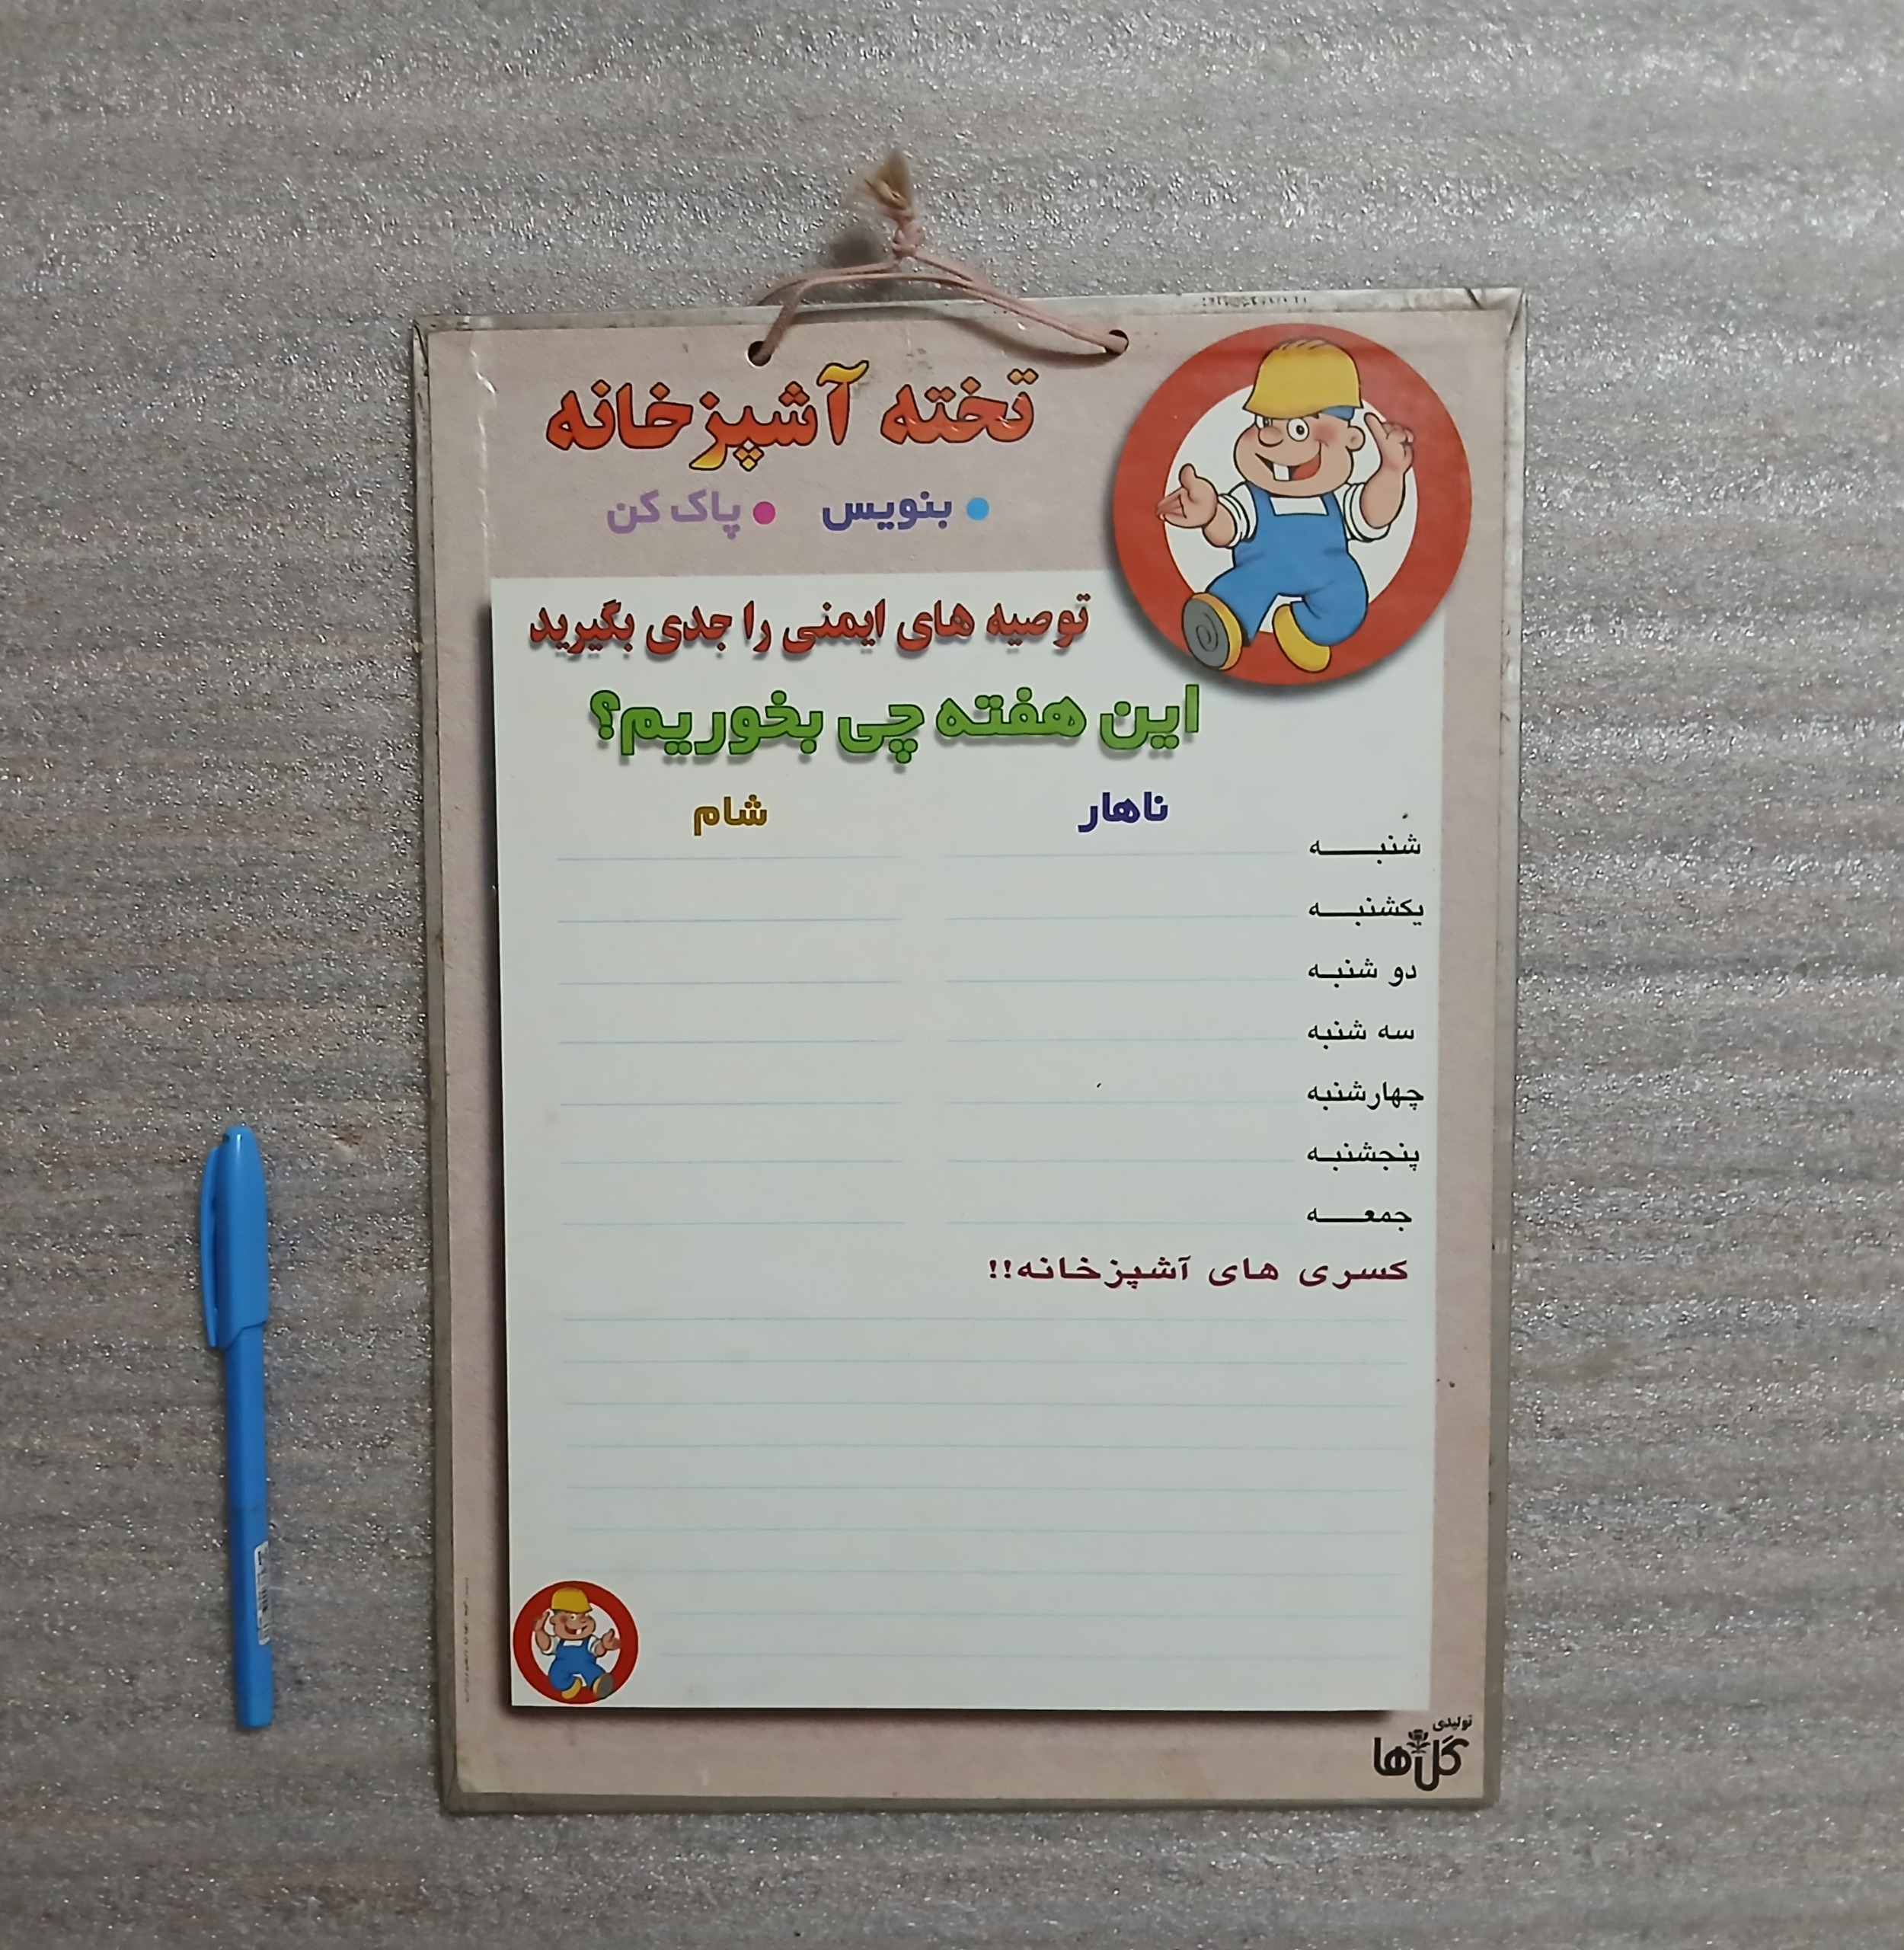 تخته آشپزخانه
• بنویس • پاک کن
توصیه های ایمنی را جدی بگیرید
این هفته چی بخوریم؟
ناهار شام
شنبه
یکشنبه
دو شنبه
سه شنبه
چهارشنبه
پنجشنبه
جمعه
کسری های آشپزخانه!!
تولیدی
گل ها